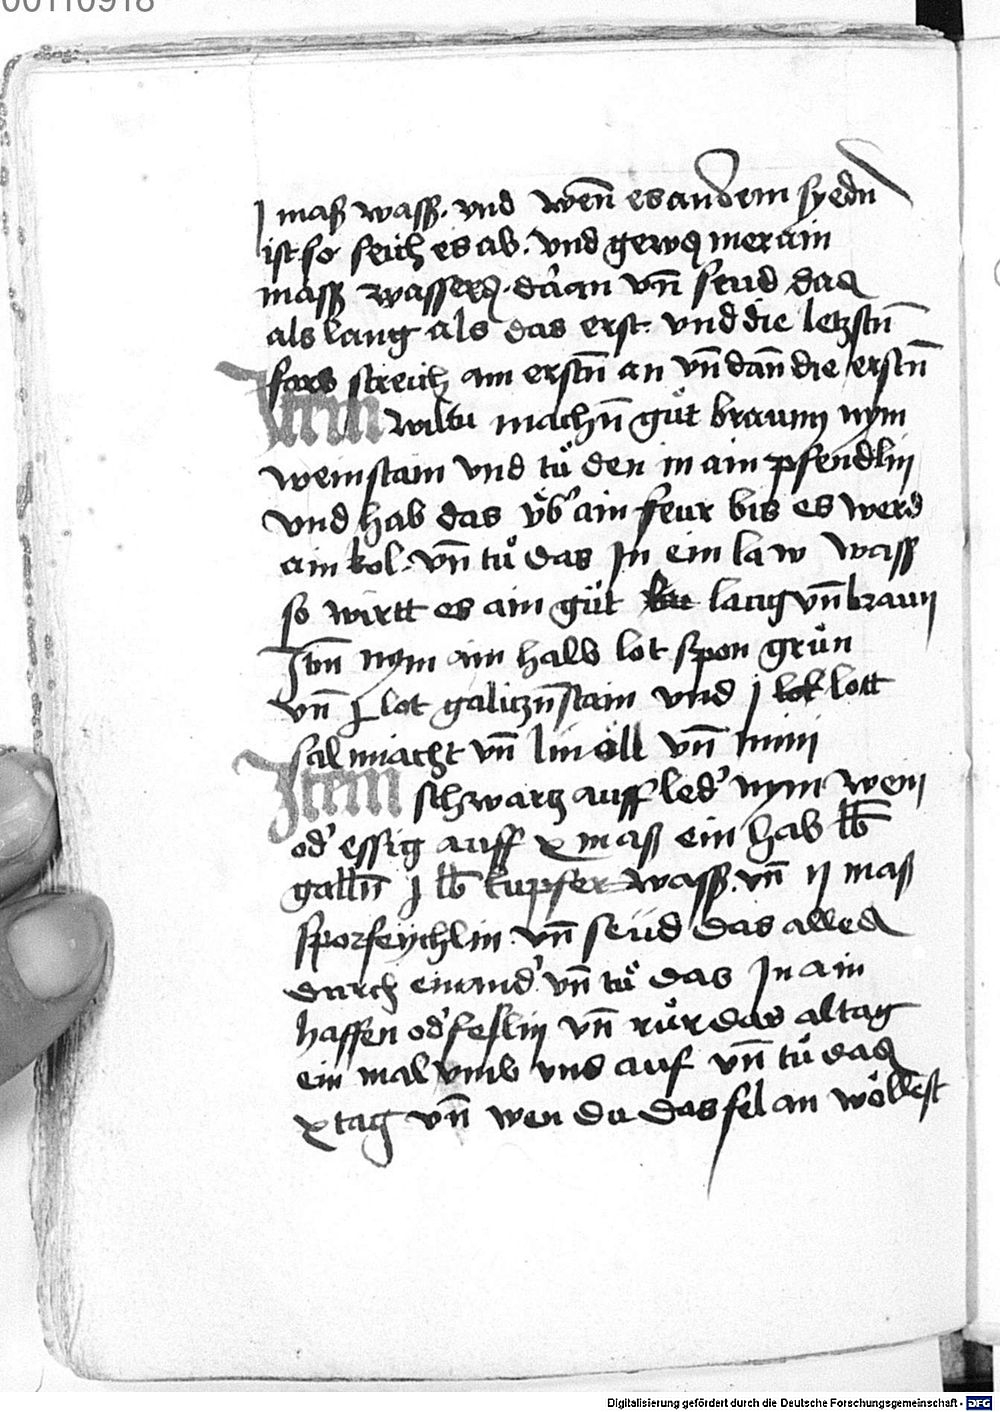 00110918
j maß wasß. vnd wen̄ es an dem syedn
ist so seich es ab. vnd gewß mer ain
masß wasserß. dar an vn̄ seud das
als lang als das erst. vnd die letzstn̄
farb streich am erstn̄ an vn̄ dan̄ die erstn̄
Item wiltu machn̄ gůt braunn nym
weinstain vnd tů den in ain pfendlin
vnd hab das vb' ain feur bis es werd
ain kol. vn̄ tů das In ein law wasß
so wirtt es ain gůt lang vn̄ braun
nym ain halb lot spon grůn
vn̄ j lot galiczn̄stain vnd j lot lott
salmiacht vn̄ lin öll vn̄
Item schwarcz auff led' nym wein
od' essig auff x maß ein hab lb
galln̄ j lb kupfer wasß. vn̄ ij maß
sporfeychlin. vn̄ seüd das alles
durch einand' vn̄ tů das In ain
haffen od' feslin vn̄ růr das al tag
ein mal vmb vnd auf vn̄ tů das
x tag vn̄ wen du das fel an wöllest
Digitalisierung gefördert durch die Deutsche Forschungsgemeinschaft - DFG